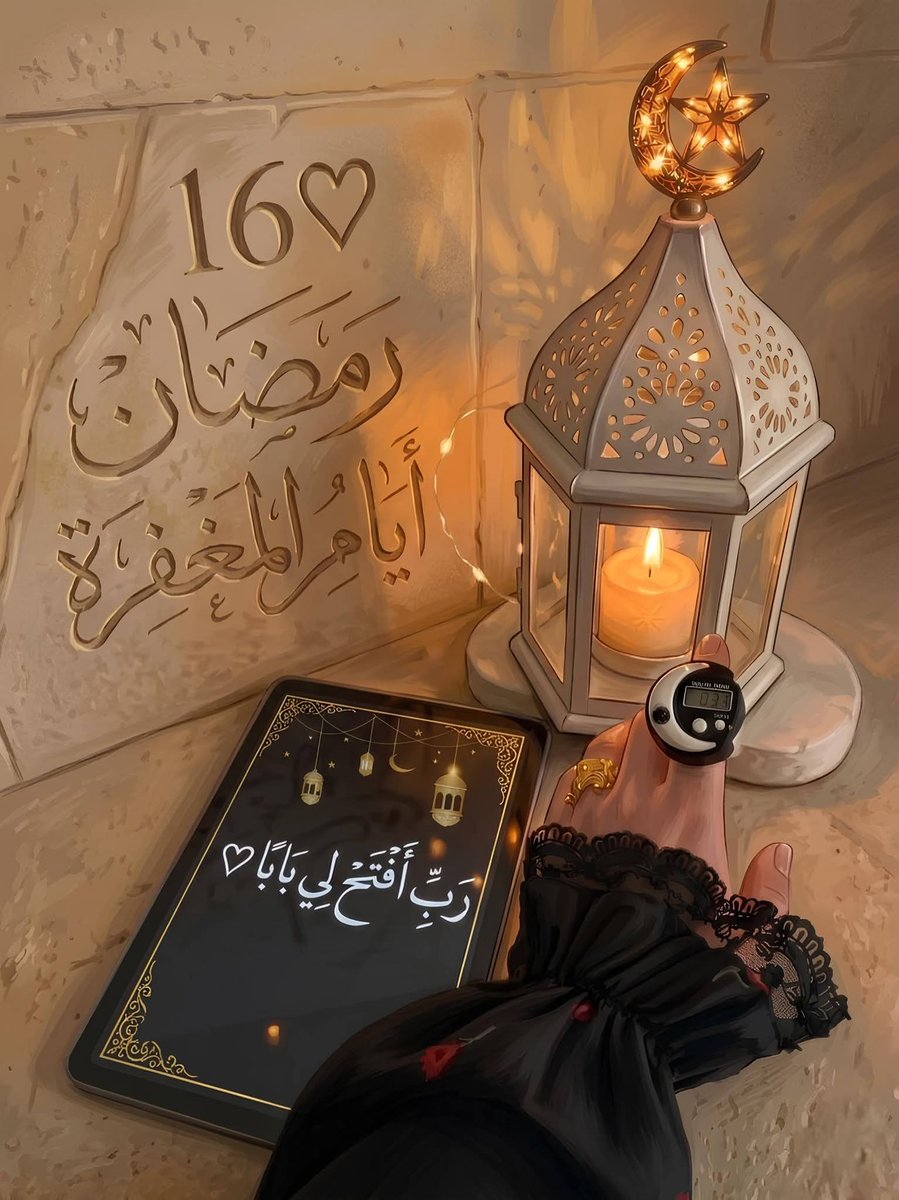 16♡
رَمَضَان
أَيَامِرُ المَغْفِرَة
رَبِّ أَفْتَحْ لِي بَابًا♡